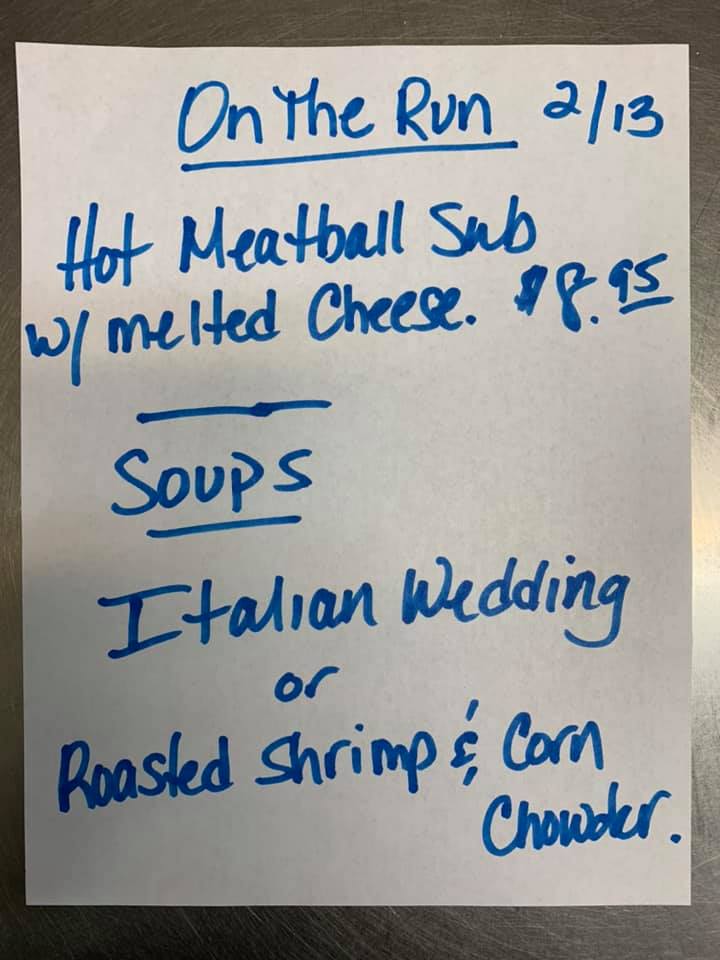 On The Run 2/13
Hot Meatball Sub
w/ melted Cheese. $8.95
Soups
Italian Wedding
or
Roasted Shrimp & Corn
Chowder.